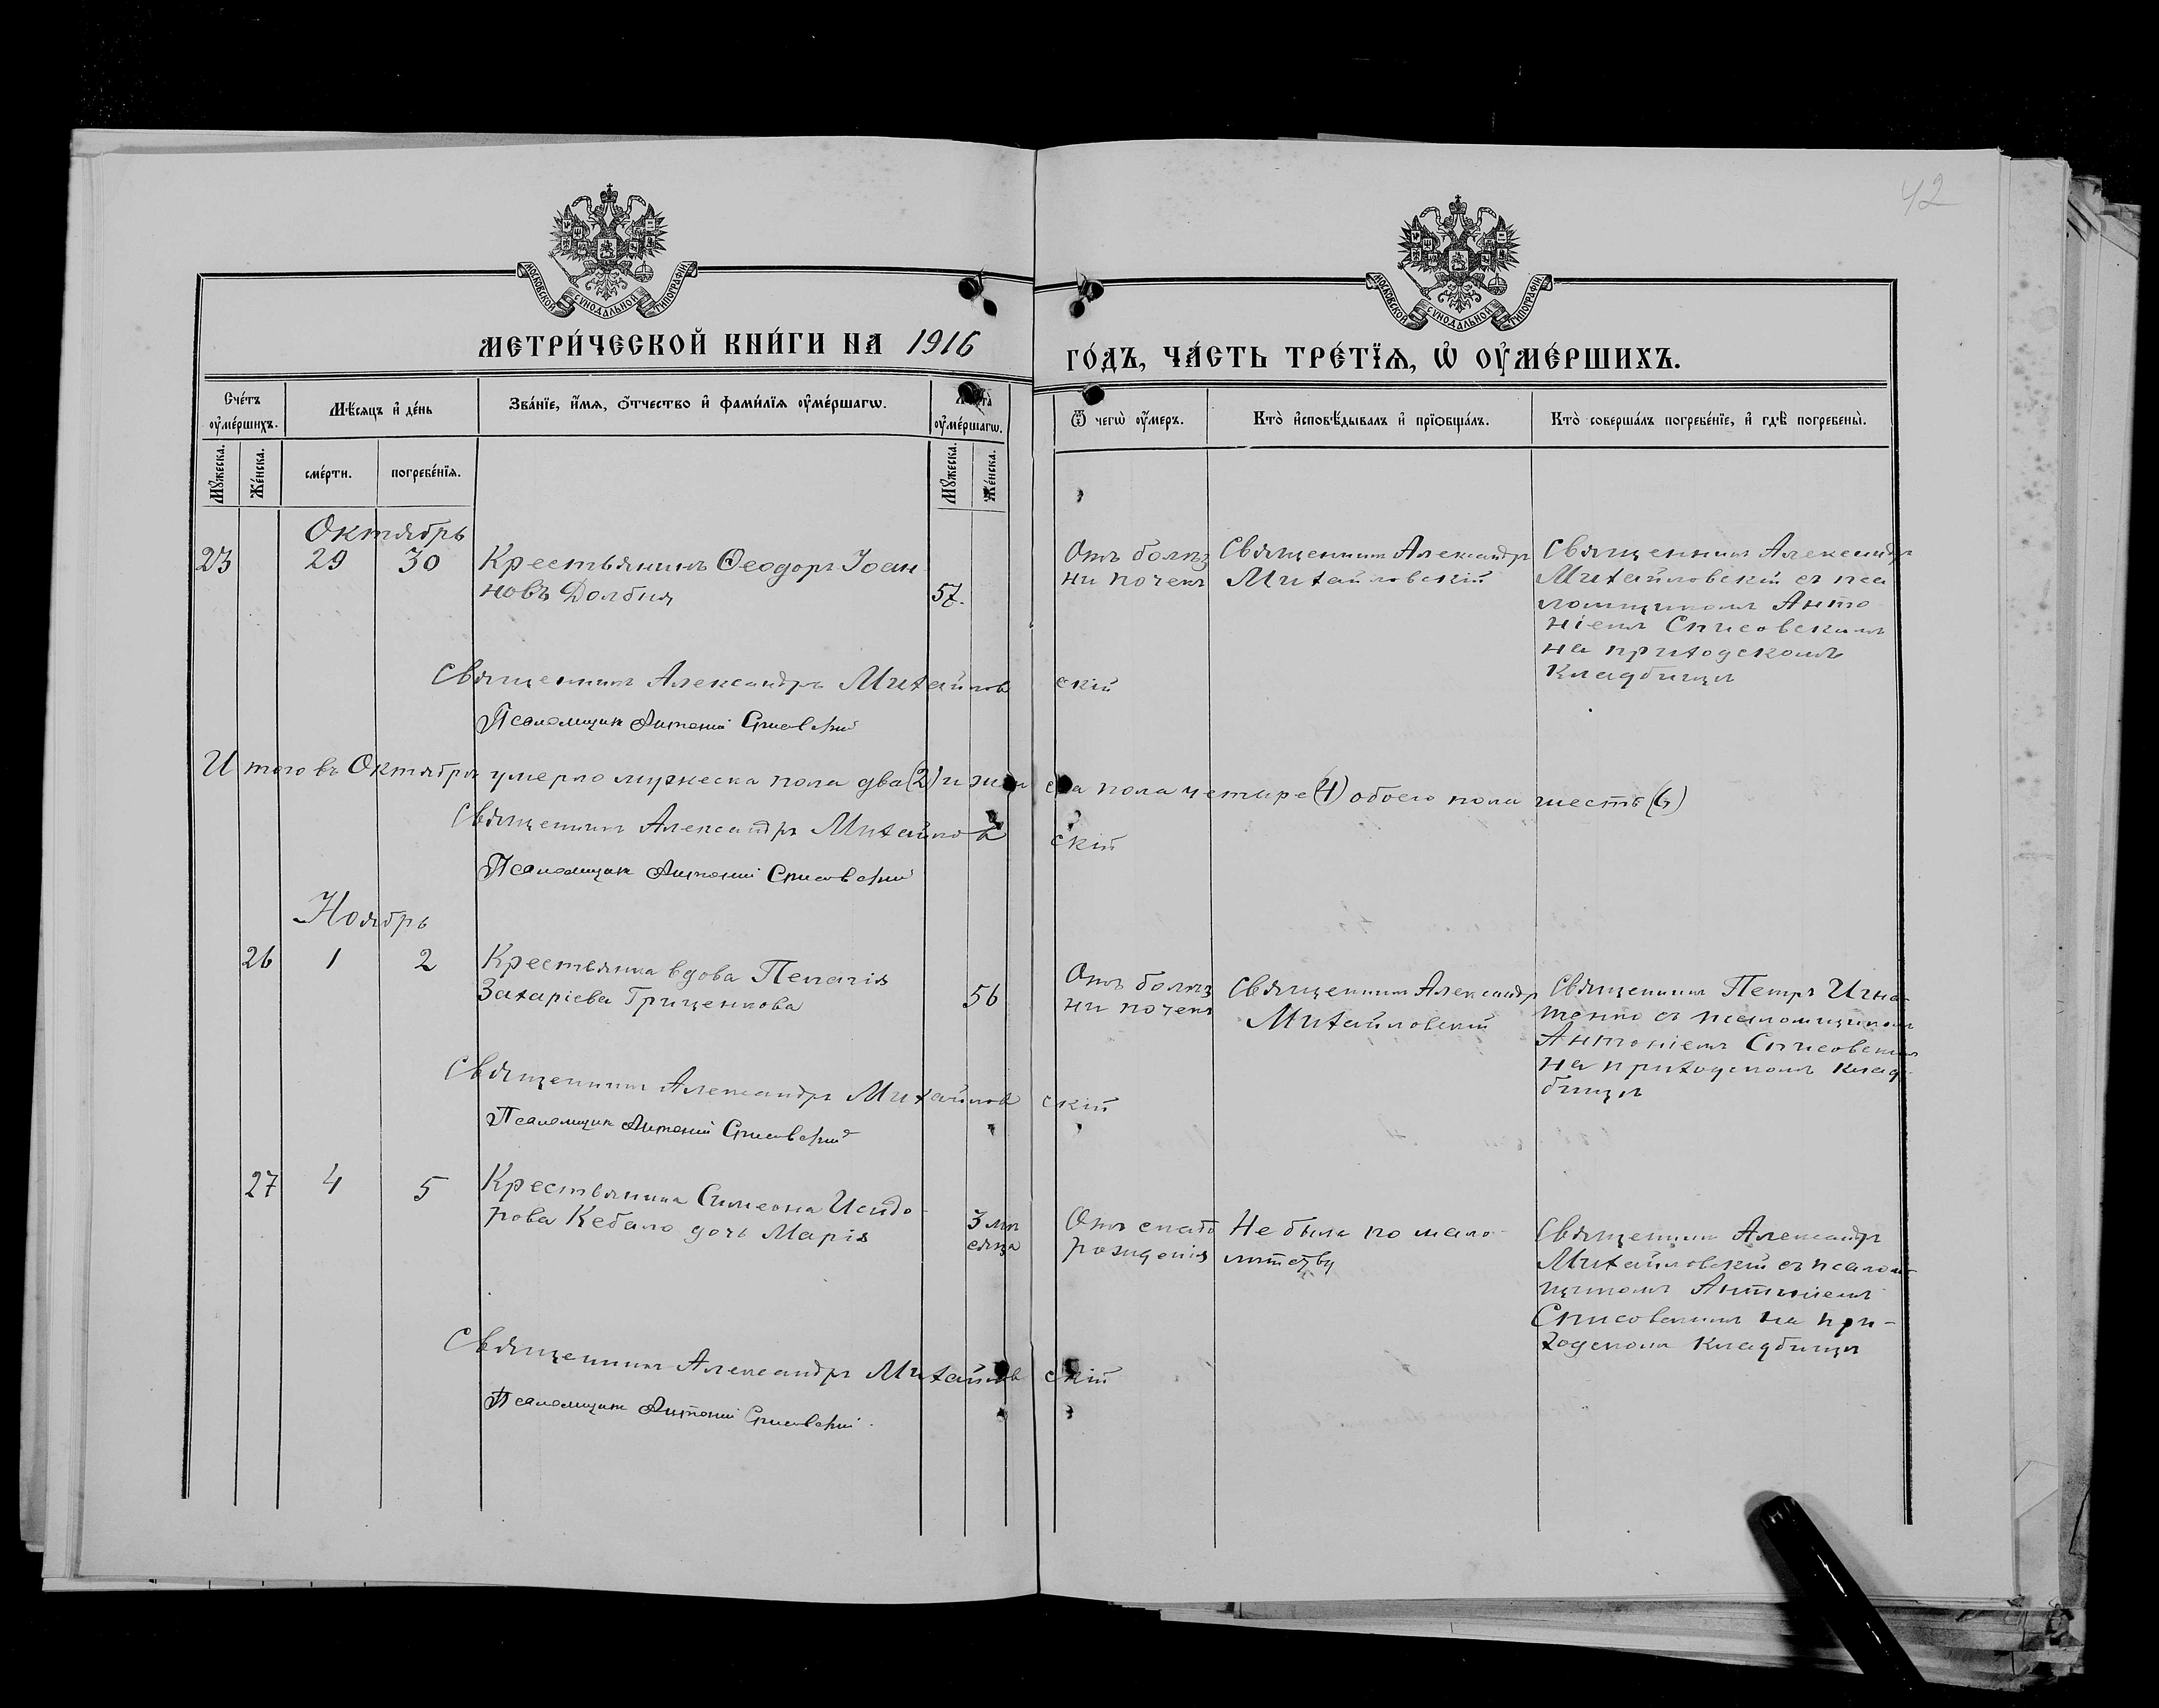 42
МОСКОВСКОЙ СѴНОДАЛЬНОЙ ТИПОГРАФІИ
МОСКОВСКОЙ СѴНОДАЛЬНОЙ ТИПОГРАФІИ
МЕТРИ́ЧЕСКОЙ КНИ́ГИ НА 1916
ГО́ДЪ, ЧА́СТЬ ТРЕ́ТЇѦ, Ѡ҆ ОУ҆МЕ́РШИХЪ.
Сче́тъ оу҆ме́ршихъ.
Мѣ́сяцъ и҆ де́нь
Зва́нїе, и҆́мя, ѻ҆́тчество и҆ фами́лїя оу҆ме́ршагѡ.
оу҆ме́ршагѡ.
Ѿ чегѡ̀ оу҆́меръ.
Кто̀ и҆сповѣ́дывалъ и҆ прїѡбща́лъ.
Кто̀ соверша́лъ погребе́нїе, и҆ гдѣ̀ погребены̀.
Мꙋ́жеска.
Же́нска.
сме́рти.
погребе́нїя.
Мꙋ́жеска.
Же́нска.
Октябрь
23 29 30 Крестьянинъ Ѳеодоръ Іоан
новъ Долбня 57.
Отъ болѣз
ни почекъ
Священникъ Александръ
Михайловскій
Священникъ Александръ
Михайловскій съ пса
ломщикомъ Анто
ніемъ Списовскимъ
на приходскомъ
кладбищѣ
Священникъ Александръ Михайловскій
Псаломщикъ Антоній Списовскій
Итого въ Октябрѣ умерло мужеска пола два (2) и женска пола четыре (4) обоего пола шесть (6)
Священникъ Александръ Михайловскій
Псаломщикъ Антоній Списовскій
Ноябрь
26 1 2 Крестьянка вдова Пелагія
Захаріева Гриценкова 56
Отъ болѣз
ни почекъ
Священникъ Александръ
Михайловскій
Священникъ Петръ Игна-
тенко съ псаломщикомъ
Антоніемъ Списовскимъ
на приходскомъ клад-
бищѣ
Священникъ Александръ Михайловскій
Псаломщикъ Антоній Списовскій
27 4 5 Крестьянина Симеона Исидо-
рова Кебало дочь Марія
3 мѣ
сяца
Отъ слабо
рожденія
Не была по мало-
лѣтству
Священникъ Александръ
Михайловскій съ псалом-
щикомъ Антоніемъ
Списовскимъ на при-
ходскомъ кладбищѣ
Священникъ Александръ Михайловскій
Псаломщикъ Антоній Списовскій.